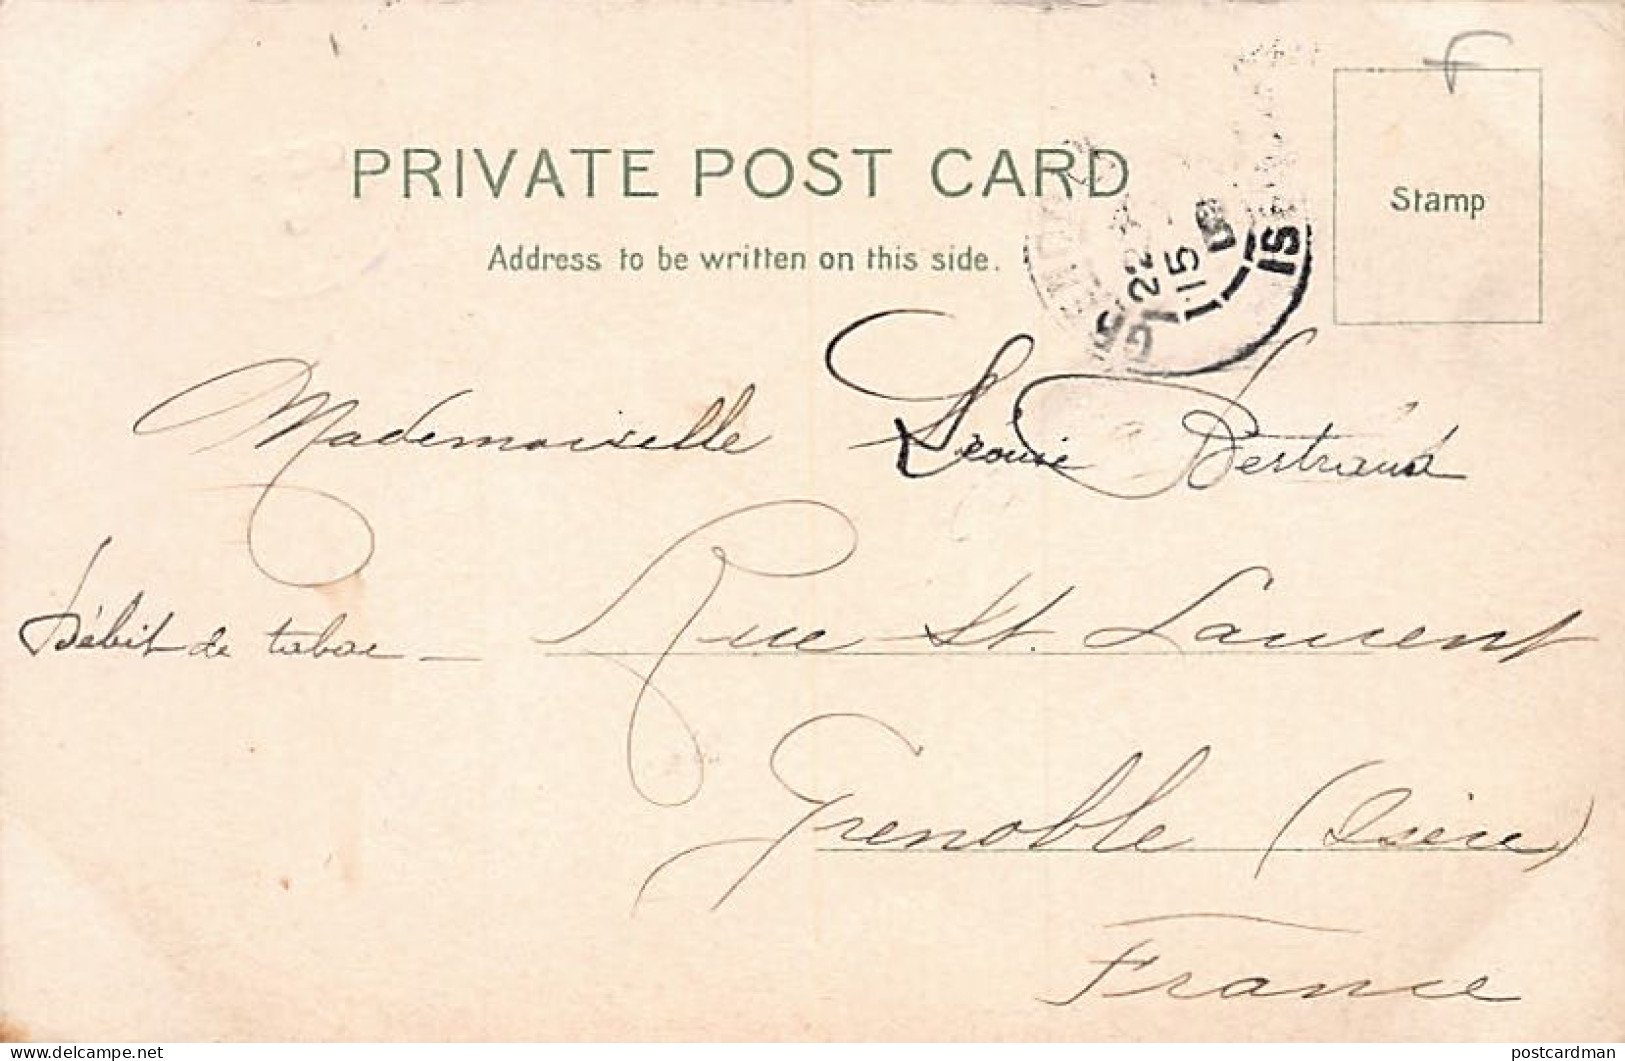 PRIVATE POST CARD
Stamp
Address to be written on this side.
22
15
Mademoiselle Léonie Bertrand
Débit de tabac - Rue St. Laurent
Grenoble (Isère)
France
delcampe.net
postcardman